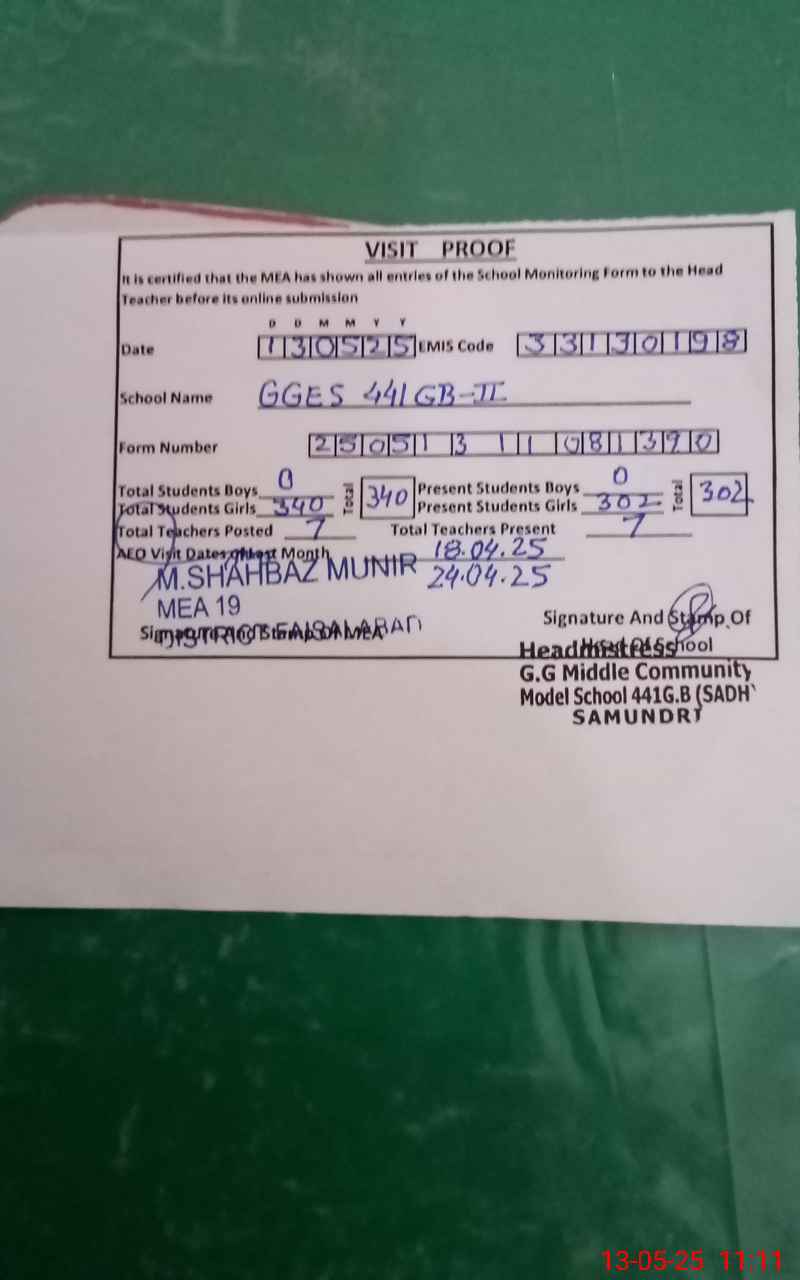 VISIT PROOF
It is certified that the MEA has shown all entries of the School Monitoring Form to the Head
Teacher before its online submission
D D M M Y Y
Date 130525 EMIS Code 33130198
School Name GGES 441GB-II
Form Number 25051311081390
Total Students Boys 0 Total 340 Present Students Boys 0 Total 302
Total Students Girls 340 Present Students Girls 302
Total Teachers Posted 7 Total Teachers Present 7
AEO Visit Dates of Last Month 18.04.25
24.04.25
M.SHAHBAZ MUNIR
MEA 19
DISTRICT FAISALABAD
Signature And Stamp Of MEA
Signature And Stamp Of
Head Of School
Headmistress
G.G Middle Community
Model School 441G.B (SADH
SAMUNDRI
13-05-25 11:11